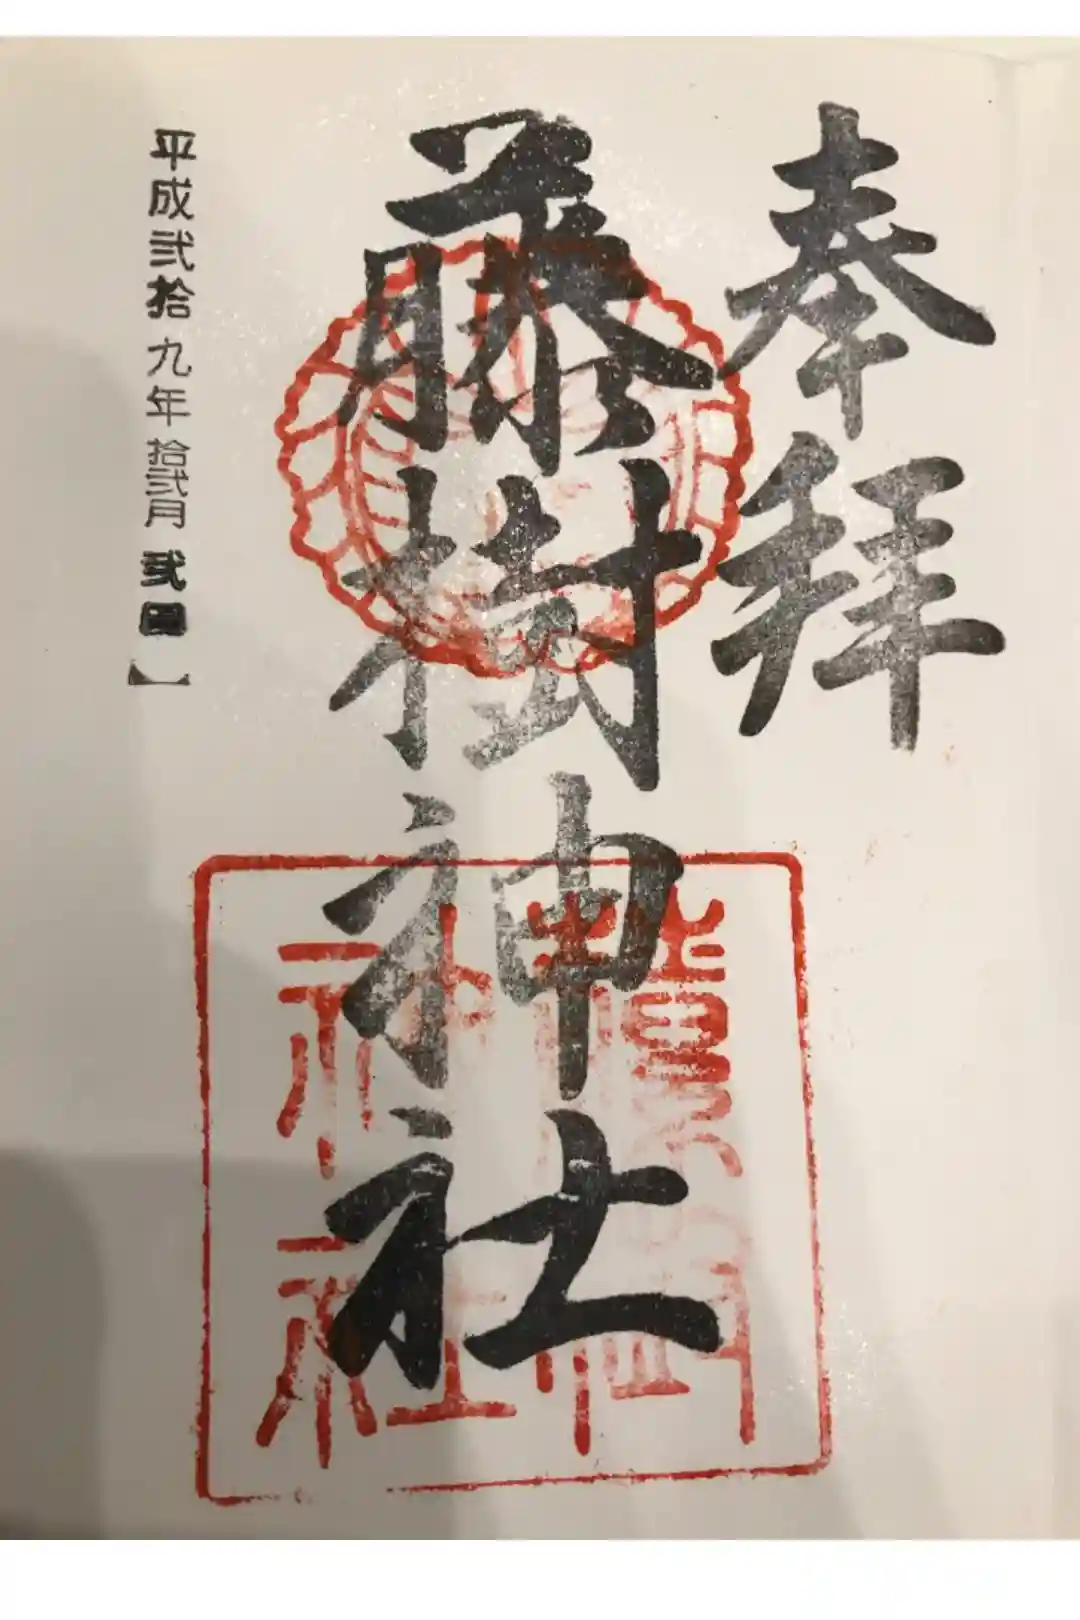 奉拝
藤樹神社
藤樹神社
平成弐拾九年拾弐月弐日】